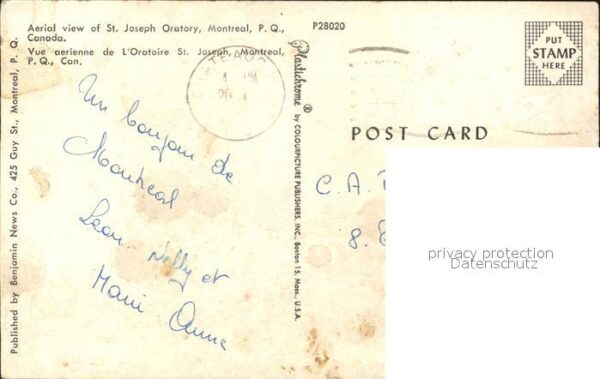 Aerial view of St. Joseph Oratory, Montreal, P. Q.,
Canada.
Vue aerienne de L'Oratoire St. Joseph, Montreal,
P. Q., Can.
P28020
PUT
STAMP
HERE
Published by Benjamin News Co., 425 Guy St., Montreal, P. Q.
Un bonjour de
Montreal
Nelly et
Marie Anne
Plastichrome ® by COLOURPICTURE PUBLISHERS, INC., Boston 15, Mass., U.S.A.
POST CARD
C. A.
8.
privacy protection
Datenschutz